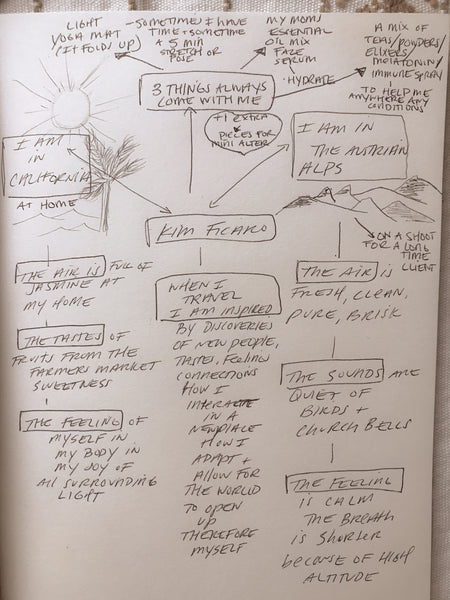 LIGHT
YOGA MAT
(IT FOLDS UP)
- SOMETIMES I HAVE
TIME + SOMETIME
A 5 MIN
STRETCH OR
POSE
MY MOMS
ESSENTIAL
OIL MIX
FACE
SERUM
· HYDRATE
A MIX OF
TEAS/POWDERS/
ELIXERS/
MELATONIN/
IMMUNE SPRAY
TO HELP ME
ANYWHERE ANY
CONDITIONS
3 THINGS ALWAYS
COME WITH ME
+1 EXTRA
PIECES FOR
MINI ALTER
I AM
IN
CALIFORNIA
AT HOME
I AM IN
THE AUSTRIAN
ALPS
KIM FICARO
ON A SHOOT
FOR A LONG
TIME
CLIENT
THE AIR IS FULL OF
JASMINE AT
MY HOME
THE TASTES OF
FRUITS FROM THE
FARMERS MARKET
SWEETNESS
THE FEELING OF
MYSELF IN
MY BODY IN
MY JOY OF
All SURROUNDING
LIGHT
WHEN I
TRAVEL
I AM INSPIRED
BY DISCOVERIES
OF NEW PEOPLE,
TASTES, FEELINGS
CONNECTIONS
HOW I
INTERACT
IN A
NEW PLACE
HOW I
ADAPT +
ALLOW FOR
THE WORLD
TO OPEN
UP
THEREFORE
MYSELF
THE AIR IS
FRESH, CLEAN,
PURE, BRISK
THE SOUNDS ARE
QUIET OF
BIRDS +
CHURCH BELLS
THE FEELING
is CALM
THE BREATH
is SHORTER
because OF HIGH
ALTITUDE